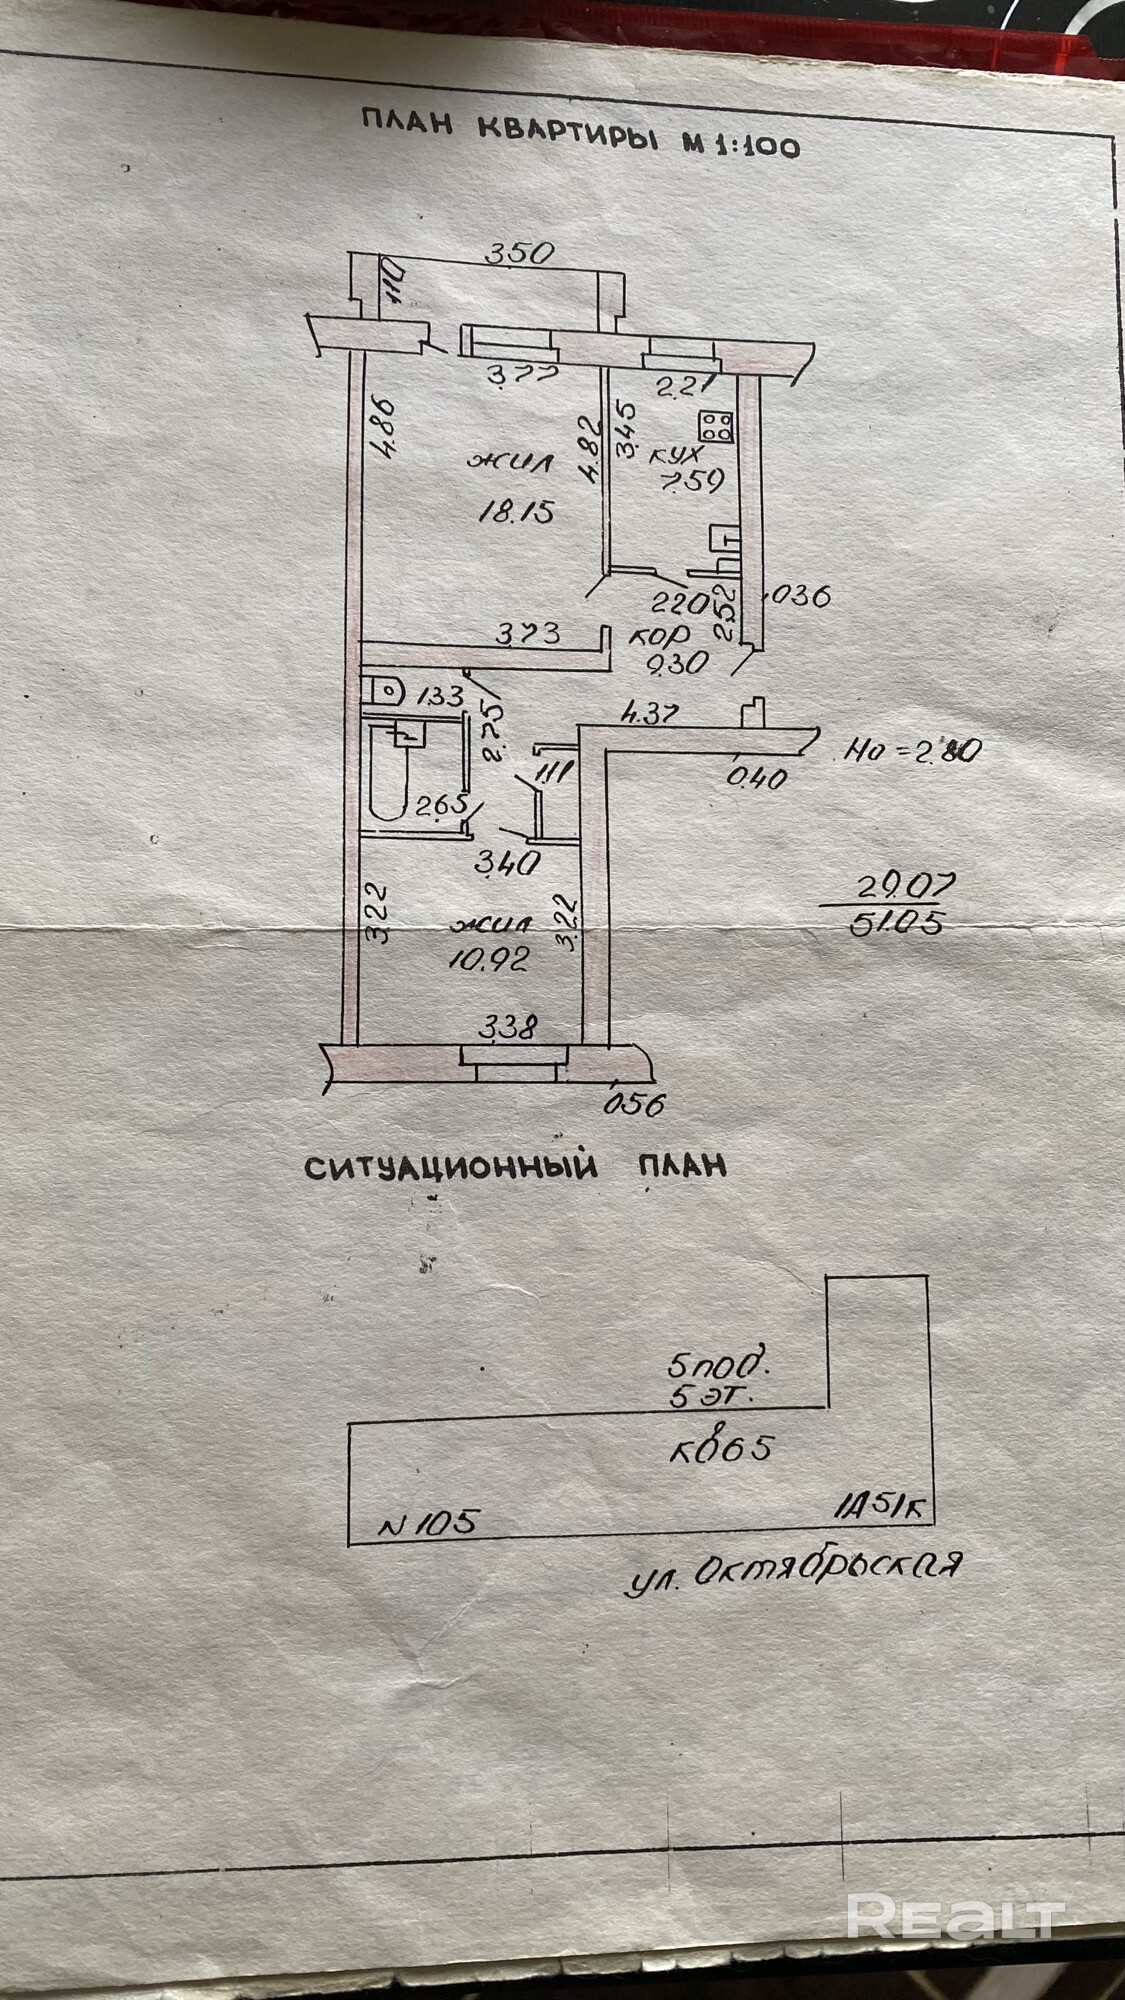 ПЛАН КВАРТИРЫ М 1:100
3.50
1.10
3.77
2.21
4.86
4.82
3.45
жил
18.15
кух
7.59
2.20
2.52
0.36
3.73
кор
9.30
1.33
2.75
4.37
1.11
Но = 2.80
0.40
2.65
3.40
29.07
51.05
3.22
3.22
жил
10.92
3.38
0.56
СИТУАЦИОННЫЙ ПЛАН
5 под.
5 эт.
кв 65
N 105
1А5/к
ул. Октябрьская
Realt